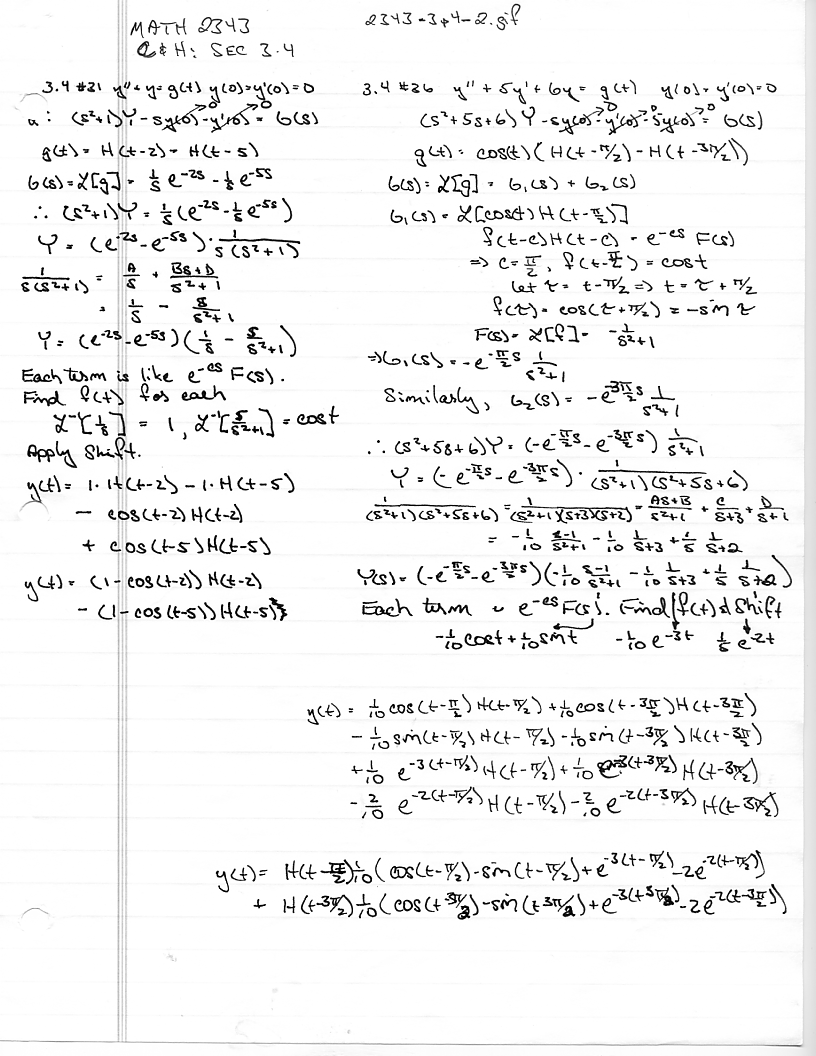 MATH 2343
2343-3p4-2.gif
C&H: SEC 3.4
3.4 #21 y''+y=g(t) y(0)=y'(0)=0
a: (s²+1)Y-sy(0)→0-y'(0)→0=G(s)
g(t)=H(t-2)-H(t-5)
G(s)=ℒ[g]=1/s e^-2s-1/s e^-5s
∴ (s²+1)Y=1/s(e^-2s-1/s e^-5s)
Y=(e^-2s-e^-5s)·1/(s(s²+1))
1/(s(s²+1))=A/s+(Bs+D)/(s²+1)
=1/s-s/(s²+1)
Y=(e^-2s-e^-5s)(1/s-s/(s²+1))
Each term is like e^-cs F(s).
Find f(t) for each
ℒ^-1[1/s]=1, ℒ^-1[s/(s²+1)]=cost
Apply Shift.
y(t)=1·H(t-2)-1·H(t-5)
-cos(t-2)H(t-2)
+cos(t-5)H(t-5)
y(t)=(1-cos(t-2))H(t-2)
-(1-cos(t-5))H(t-5)
3.4 #26 y''+5y'+6y=g(t) y(0)=y'(0)=0
(s²+5s+6)Y-sy(0)→0-y'(0)→0-5y(0)→0=G(s)
g(t)=cos(t)(H(t-π/2)-H(t-3π/2))
G(s)=ℒ[g]=G₁(s)+G₂(s)
G₁(s)=ℒ[cos(t)H(t-π/2)]
f(t-c)H(t-c)=e^-cs F(s)
⇒ c=π/2, f(t-π/2)=cost
let τ=t-π/2⇒t=τ+π/2
f(τ)=cos(τ+π/2)=-sin τ
F(s)=ℒ[f]=-1/(s²+1)
⇒G₁(s)=-e^-π/2s 1/(s²+1)
Similarly, G₂(s)=-e^-3π/2s 1/(s²+1)
∴(s²+5s+6)Y=(-e^-π/2s-e^-3π/2s)1/(s²+1)
Y=(-e^-π/2s-e^-3π/2s)·1/((s²+1)(s²+5s+6))
1/((s²+1)(s²+5s+6))=1/((s²+1)(s+3)(s+2))=(As+B)/(s²+1)+C/(s+3)+D/(s+1)
=-1/10 (s-1)/(s²+1)-1/10 1/(s+3)+1/5 1/(s+2)
Y(s)=(-e^-π/2s-e^-3π/2s)(-1/10 (s-1)/(s²+1)-1/10 1/(s+3)+1/5 1/(s+2))
Each term ~ e^-cs F(s). Find f(t) & Shift
-1/10 cost+1/10 sint -1/10 e^-3t 1/5 e^-2t
y(t)=1/10 cos(t-π/2)H(t-π/2)+1/10 cos(t-3π/2)H(t-3π/2)
-1/10 sin(t-π/2)H(t-π/2)-1/10 sin(t-3π/2)H(t-3π/2)
+1/10 e^-3(t-π/2)H(t-π/2)+1/10 e^-3(t-3π/2)H(t-3π/2)
-2/10 e^-2(t-π/2)H(t-π/2)-2/10 e^-2(t-3π/2)H(t-3π/2)
y(t)=H(t-π/2)1/10(cos(t-π/2)-sin(t-π/2)+e^-3(t-π/2)-2e^-2(t-π/2))
+H(t-3π/2)1/10(cos(t-3π/2)-sin(t-3π/2)+e^-3(t-3π/2)-2e^-2(t-3π/2))